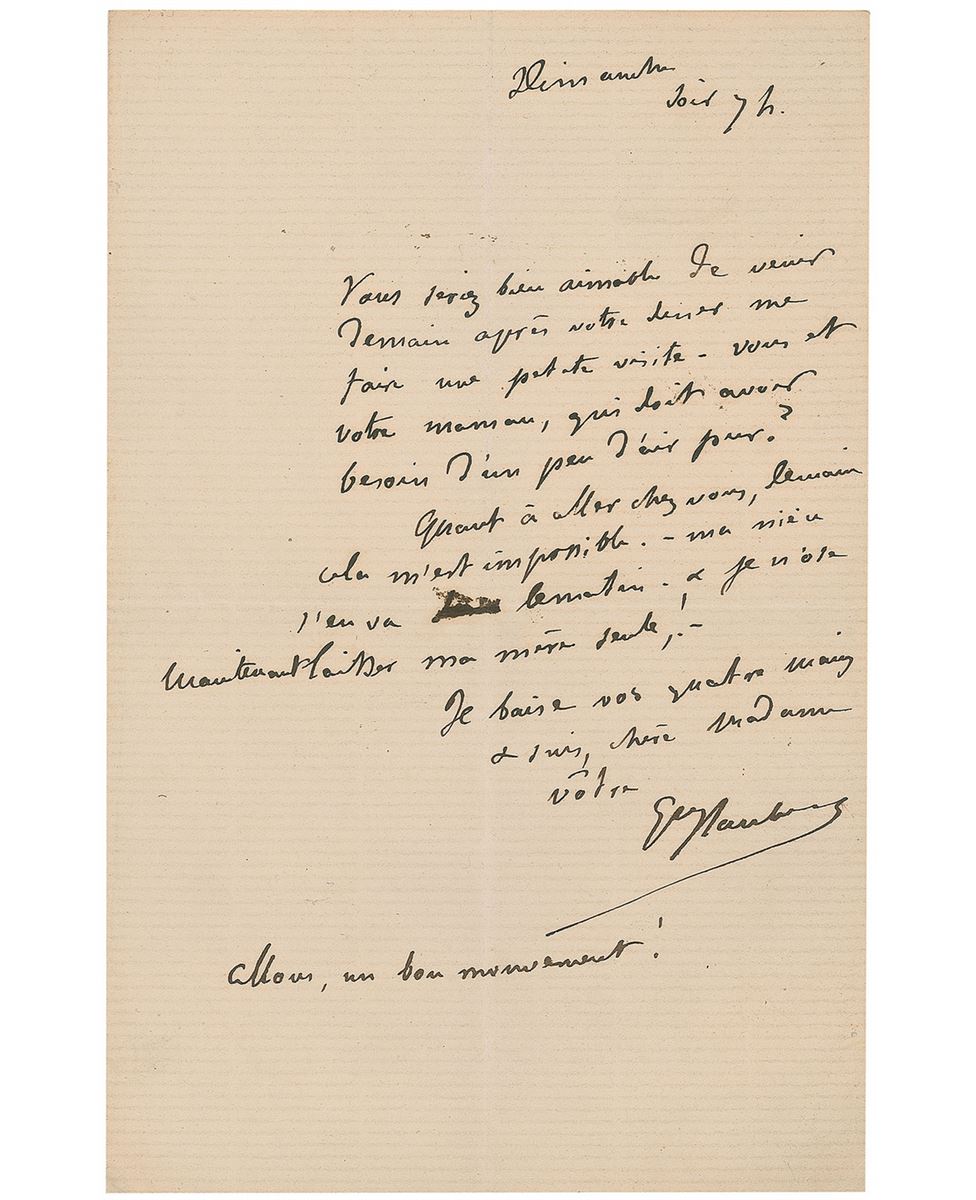 Dimanche
soir 7 h.
Vous seriez bien aimable de venir
demain après votre diner me
faire une petite visite - vous et
votre maman, qui doit avoir
besoin d'un peu d'air pur ?
Quant à aller chez vous, demain
cela m'est impossible. - ma nièce
s'en va le matin - & je n'ose
maintenant laisser ma mère seule ! -
Je baise vos quatre mains
& suis, chère Madame
vôtre
Gve Flaubert
Allons, un bon mouvement !